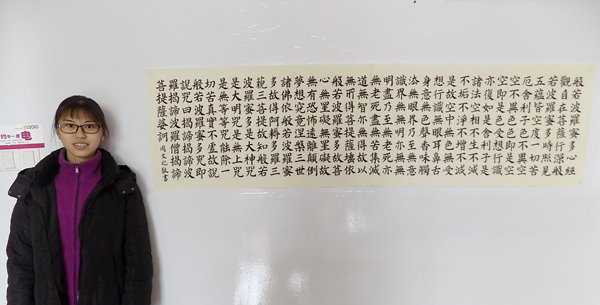 般若波羅蜜多心經
觀自在菩薩行深般
若波羅蜜多時照見
五蘊皆空度一切苦
厄舍利子色不異
空不異色色即是空
空即是色受想行識
亦復如是舍利子是
諸法空相不生不滅
不垢不淨不增不減
是故空中無色無受
想行識無眼耳鼻舌
身意無色聲香味觸
法無眼界乃至無意
識界無無明亦無無
明盡乃至無老死亦
無老死盡無苦集滅
道無智亦無得以
無所得故菩提薩埵依
般若波羅蜜多故
心無罣礙無罣礙故
無有恐怖遠離顛倒
夢想究竟涅槃三世
諸佛依般若波羅蜜
多故得阿耨多羅三
藐三菩提故知般若
波羅蜜多是大神咒
是大明咒是無上咒
是無等等咒能除一
切苦真實不虛故說
般若波羅蜜多咒即
說咒曰揭諦揭諦波
羅揭諦波羅僧揭諦
菩提薩婆訶
电